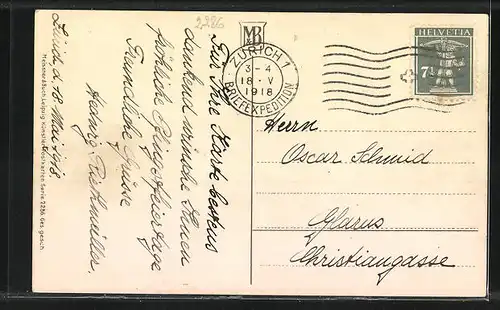 2286
MB
ZÜRICH 1
3-4
18-V
1918
BRIEFEXPEDITION
HELVETIA
7½
Zürich d. 18. Mai 1918.
Für Ihre Karte bestens
dankend wünsche Ihnen
fröhliche Pfingstfeiertage
Freundliche Grüsse
Hedwig
Herrn
Oscar Schmid
Glarus
Christiangasse
Meissner & Buch, Leipzig. Künstler-Postkarten. Serie 2286. Ges. gesch.